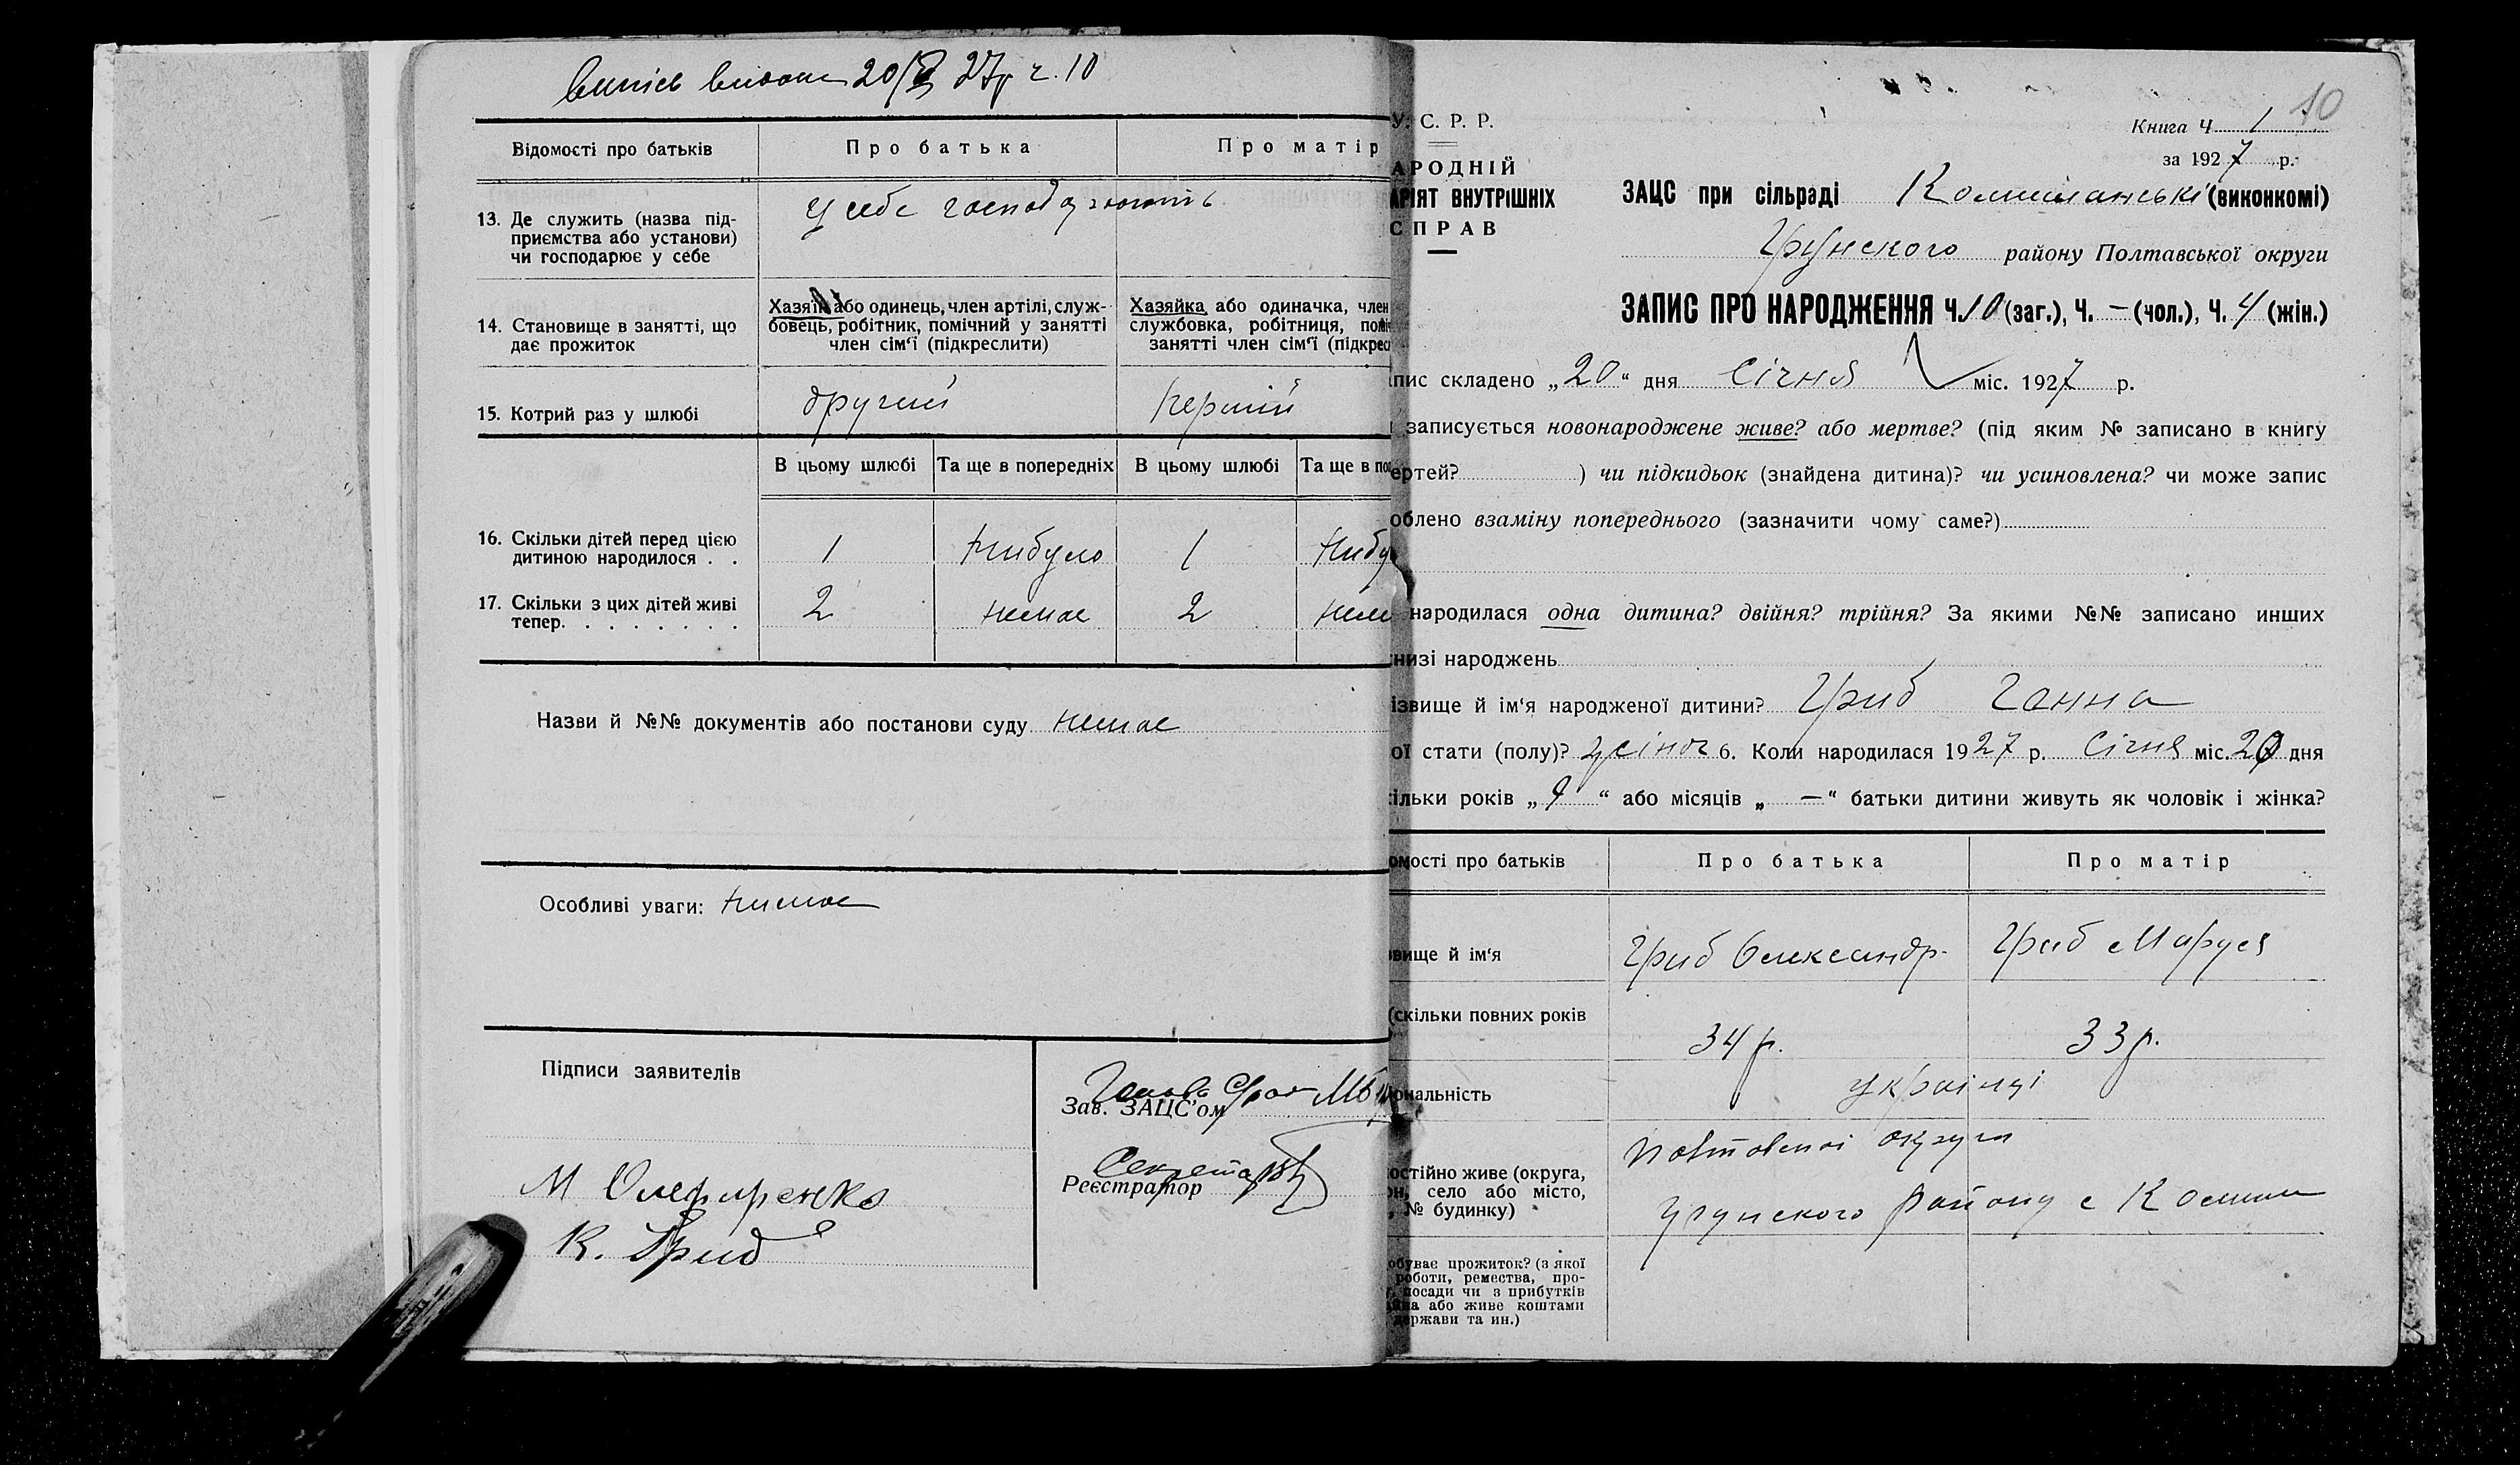 випись видана 20/I 27р ч. 10
Відомості про батьків
Про батька
Про матір
13. Де служить (назва під-
приємства або установи)
чи господарює у себе
у себе господарюють
14. Становище в занятті, що
дає прожиток
Хазяїн або одинець, член артілі, служ-
бовець, робітник, помічний у занятті
член сім'ї (підкреслити)
Хазяйка або одиначка, член
службовка, робітниця, поміч
занятті член сім'ї (підкрес
15. Котрий раз у шлюбі
другий
первий
В цьому шлюбі
Та ще в попередніх
В цьому шлюбі
Та ще в поп
16. Скільки дітей перед цією
дитиною народилося . .
1
нибуло
1
нибу
17. Скільки з цих дітей живі
тепер. . . . . . . .
2
немає
2
нем
Назви й №№ документів або постанови суду немає
Особливі уваги: нимає
Підписи заявителів
М Олефиренко
К. Гриб
Голова
Зав. ЗАЦС'ом
Секретарь
Реєстратор
10
У. С. Р. Р.
АРОДНІЙ
АРІЯТ ВНУТРІШНІХ
СПРАВ
Книга Ч 1
за 1927 р.
ЗАЦС при сільраді Комишанські (виконкомі)
Грунского району Полтавської округи
ЗАПИС ПРО НАРОДЖЕННЯ Ч. 10 (заг.), Ч. — (чол.), Ч. 4 (жін.)
пис складено „20" дня Січня міс. 1927 р.
записується новонароджене живе? або мертве? (під яким № записано в книгу
ертей? ) чи підкидьок (знайдена дитина)? чи усиновлена? чи може запис
облено взаміну попереднього (зазначити чому саме?)
народилася одна дитина? двійня? трійня? За якими №№ записано инших
низі народжень
ізвище й ім'я народженої дитини? Гриб Ганна
ої стати (полу)? жіноч 6. Коли народилася 1927 р. Січня міс. 20 дня
ільки років „9" або місяців „—" батьки дитини живуть як чоловік і жінка?
омості про батьків
Про батька
Про матір
вище й ім'я
Гриб Олександр
Гриб Маруся
(скільки повних років
34 р.
33 р.
ональність
українці
остійно живе (округа,
он, село або місто,
, № будинку)
Полтавської округи
Грунського району с Комиши
обуває прожиток? (з якої
роботи, ремества, про-
, посади чи з прибутків
йна або живе коштами
держави та ин.)